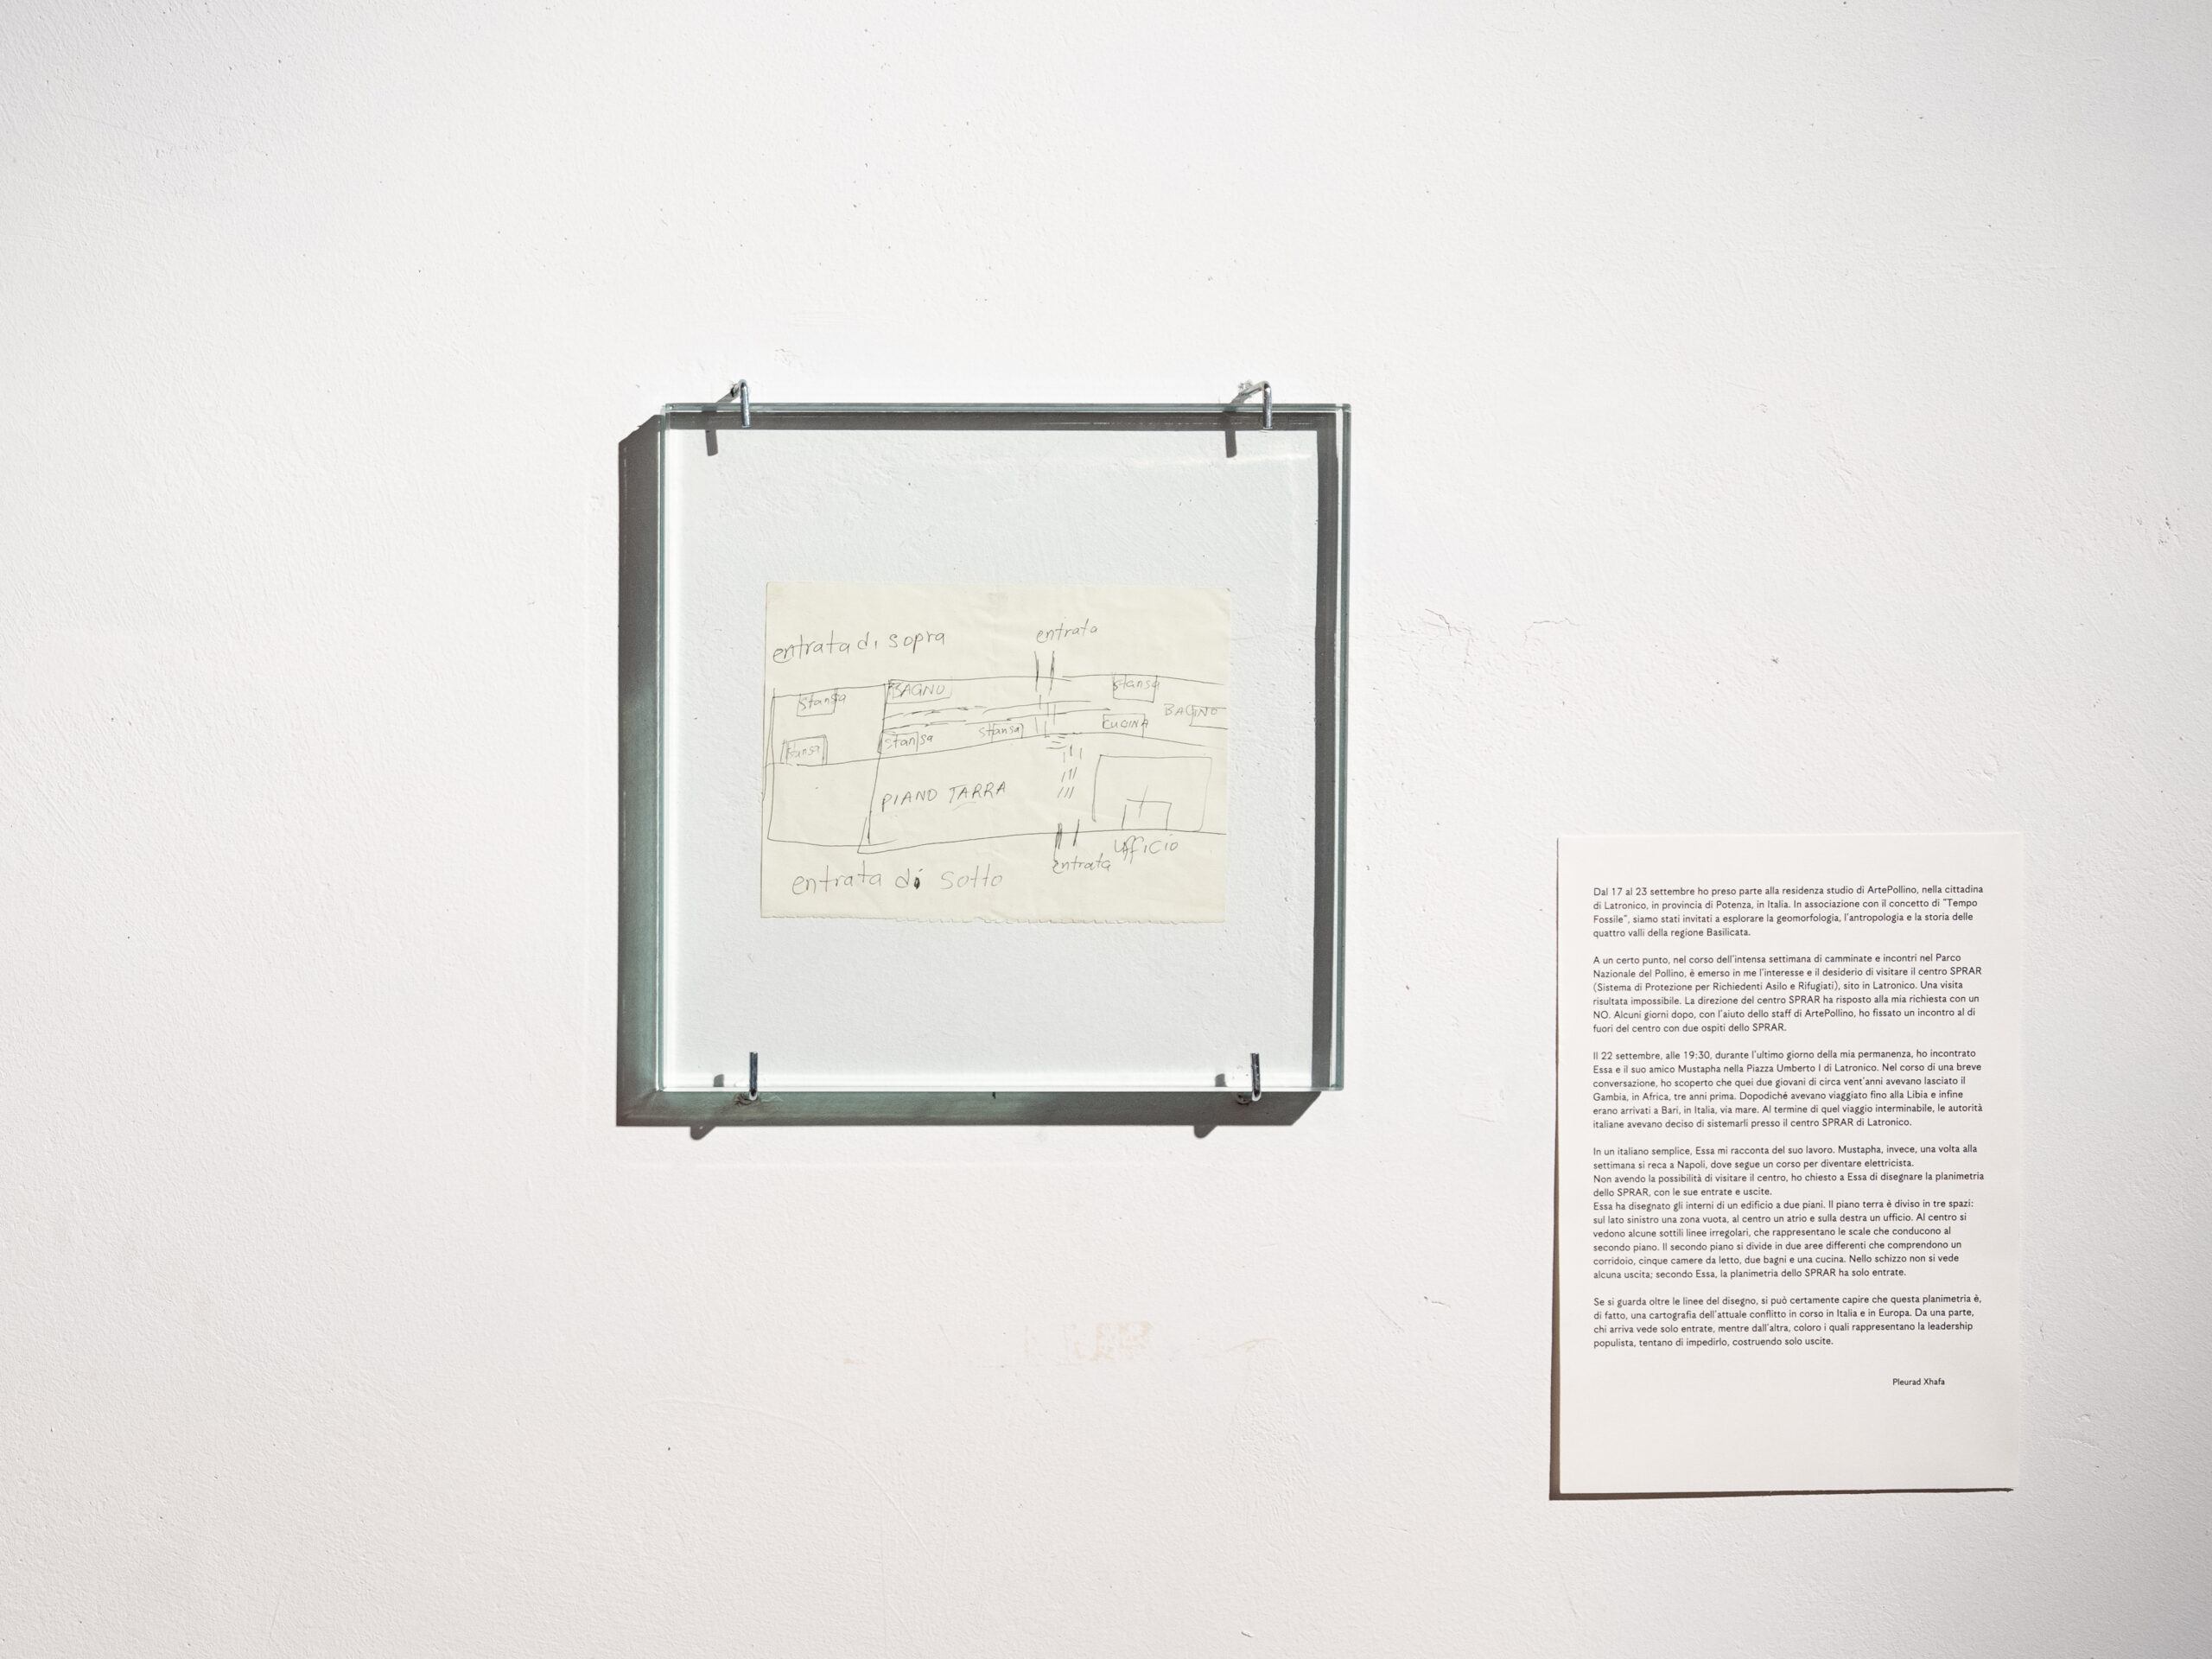 entrata di sopra
entrata
stansa
BAGNO
stansa
BAGINO
stansa
stansa
stansa
CUCINA
PIANO TARRA
ufficio
entrata
entrata di sotto
Dal 17 al 23 settembre ho preso parte alla residenza studio di ArtePollino, nella cittadina
di Latronico, in provincia di Potenza, in Italia. In associazione con il concetto di "Tempo
Fossile", siamo stati invitati a esplorare la geomorfologia, l'antropologia e la storia delle
quattro valli della regione Basilicata.
A un certo punto, nel corso dell'intensa settimana di camminate e incontri nel Parco
Nazionale del Pollino, è emerso in me l'interesse e il desiderio di visitare il centro SPRAR
(Sistema di Protezione per Richiedenti Asilo e Rifugiati), sito in Latronico. Una visita
risultata impossibile. La direzione del centro SPRAR ha risposto alla mia richiesta con un
NO. Alcuni giorni dopo, con l'aiuto dello staff di ArtePollino, ho fissato un incontro al di
fuori del centro con due ospiti dello SPRAR.
Il 22 settembre, alle 19:30, durante l'ultimo giorno della mia permanenza, ho incontrato
Essa e il suo amico Mustapha nella Piazza Umberto I di Latronico. Nel corso di una breve
conversazione, ho scoperto che quei due giovani di circa vent'anni avevano lasciato il
Gambia, in Africa, tre anni prima. Dopodiché avevano viaggiato fino alla Libia e infine
erano arrivati a Bari, in Italia, via mare. Al termine di quel viaggio interminabile, le autorità
italiane avevano deciso di sistemarli presso il centro SPRAR di Latronico.
In un italiano semplice, Essa mi racconta del suo lavoro. Mustapha, invece, una volta alla
settimana si reca a Napoli, dove segue un corso per diventare elettricista.
Non avendo la possibilità di visitare il centro, ho chiesto a Essa di disegnare la planimetria
dello SPRAR, con le sue entrate e uscite.
Essa ha disegnato gli interni di un edificio a due piani. Il piano terra è diviso in tre spazi:
sul lato sinistro una zona vuota, al centro un atrio e sulla destra un ufficio. Al centro si
vedono alcune sottili linee irregolari, che rappresentano le scale che conducono al
secondo piano. Il secondo piano si divide in due aree differenti che comprendono un
corridoio, cinque camere da letto, due bagni e una cucina. Nello schizzo non si vede
alcuna uscita; secondo Essa, la planimetria dello SPRAR ha solo entrate.
Se si guarda oltre le linee del disegno, si può certamente capire che questa planimetria è,
di fatto, una cartografia dell'attuale conflitto in corso in Italia e in Europa. Da una parte,
chi arriva vede solo entrate, mentre dall'altra, coloro i quali rappresentano la leadership
populista, tentano di impedirlo, costruendo solo uscite.
Pleurad Xhafa